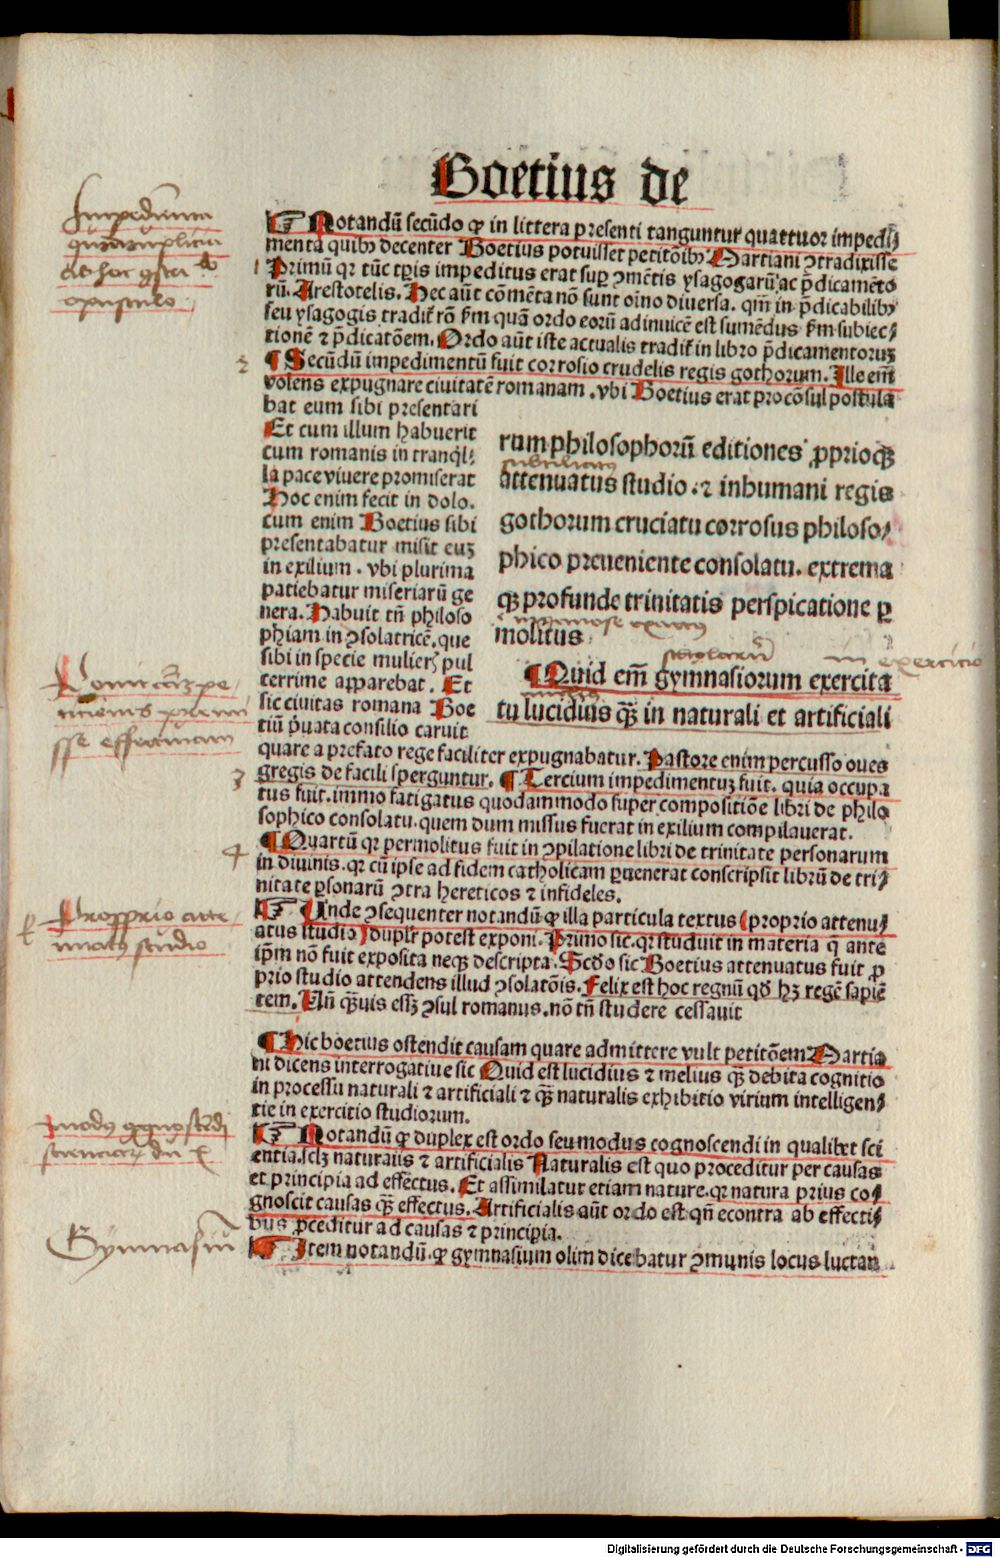 Boetius de
Notandū secūdo ꝙ in littera presenti tanguntur quattuor impedi⸗
menta quibꝰ decenter Boetius potuisset petitōibꝰ Martiani ↄtradixisse
1 Primū qr tūc tꝑis impeditus erat suꝑ ↄmētis ysagogarū ac p̄dicamēto
rū. Arestotelis. Hec aūt cōmēta nō sunt oīno diuersa. qm̄ in p̄dicabilibꝰ
seu ysagogis tradit̄ rō s̄m quā ordo eorū adinuicē est sumēdus s̄m subiec⸗
tionē ⁊ p̄dicatōem. Ordo aūt iste actualis tradit̄ in libro p̄dicamentoruꝫ
2 ¶ Secūdū impedimentū fuit corrosio crudelis regis gothorum. Ille em̄
volens expugnare ciuitatē romanam. vbi Boetius erat procōsul postula
bat eum sibi presentari
Et cum illum habuerit
cum romanis in tranq̇l⸗
la pace viuere promiserat
Hoc enim fecit in dolo.
cum enim Boetius sibi
presentabatur misit euꝫ
in exilium. vbi plurima
patiebatur miseriarū ge
nera. Habuit tn̄ philoso
phiam in ↄsolatricē. que
sibi in specie mulieꝝ pul
cerrime apparebat. Et
sic ciuitas romana Boe
tiū p̄uata consilio caruit
rum philosophorū editiones ꝓprioqꝫ
subtiliatus
attenuatus studio. ⁊ inhumani regis
gothorum cruciatu corrosus philoso⸗
phico preueniente consolatu. extrema
qꝫ profunde trinitatis perspicatione ꝑ
molitus.
scholarū in exercitio
¶ Quid em̄ gymnasiorum exercita
tu lucidius qꝫ in naturali et artificiali
quare a prefato rege faciliter expugnabatur. Pastore enim percusso oues
3 gregis de facili sperguntur. ¶ Tercium impedimentuꝫ fuit. quia occupa
tus fuit. immo fatigatus quodammodo super compositiōe libri de philo
sophico consolatu. quem dum missus fuerat in exilium compilauerat.
4 ¶ Quartū qr permolitus fuit in ↄpilatione libri de trinitate personarum
in diuinis. qr cū ipse ad fidem catholicam ꝑuenerat conscripsit librū de tri⸗
nitate ꝑsonarū ↄtra hereticos ⁊ infideles.
Unde ↄsequenter notandū ꝙ illa particula textus (proprio attenu⸗
atus studio) duplr̄ potest exponi. Primo sic. qr studuit in materia q̄ ante
ip̄m nō fuit exposita neqꝫ descripta. Scd̄o sic Boetius attenuatus fuit ꝓ
prio studio attendens illud ↄsolatōis. Felix est hoc regnū qd̄ hꝫ regē sapiē
tem. Un̄ qꝫuis essꝫ ↄsul romanus. nō tn̄ studere cessauit
¶ Hic boetius ostendit causam quare admittere vult petitōem Martia
ni dicens interrogatiue sic Quid est lucidius ⁊ melius qꝫ debita cognitio
in processu naturali ⁊ artificiali ⁊ qꝫ naturalis exhibitio virium intelligen⸗
tie in exercitio studiorum.
Notandū ꝙ duplex est ordo seu modus cognoscendi in qualibet sci
entia. sclꝫ naturalis ⁊ artificialis Naturalis est quo proceditur per causas
et principia ad effectus. Et assimilatur etiam nature. qr natura prius co⸗
gnoscit causas qꝫ effectus. Artificialis aūt ordo est qn̄ econtra ab effecti⸗
bus ꝓceditur ad causas ⁊ principia.
Item notandū. ꝙ gymnasium olim dicebatur ↄmunis locus luctan
Impedimenta
opusculo
Prosprio atte
nuatus studio
Gymnasiū
Digitalisierung gefördert durch die Deutsche Forschungsgemeinschaft - DFG